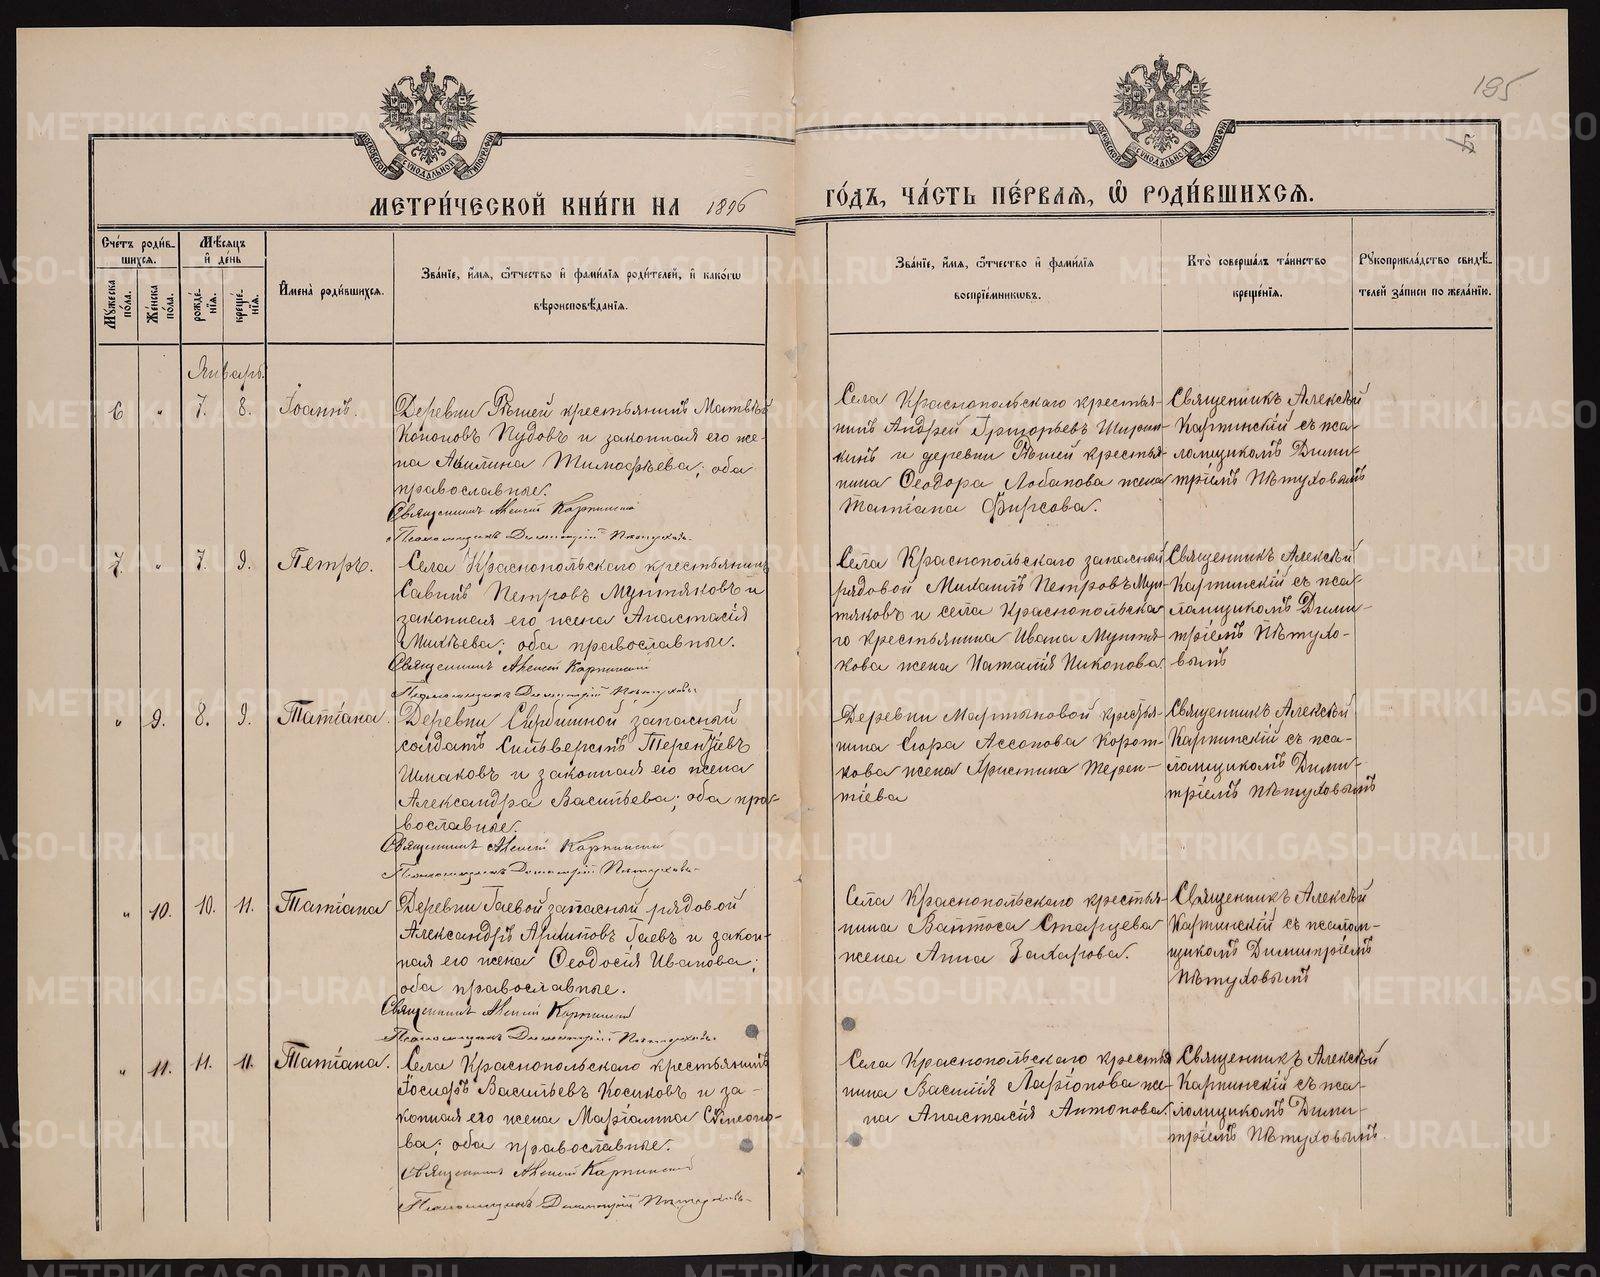 195
5
МОСКОВСКОЙ СѴНОДАЛЬНОЙ ТИПОГРАФІИ
МОСКОВСКОЙ СѴНОДАЛЬНОЙ ТИПОГРАФІИ
МЕТРИ́ЧЕСКОЙ КНИ́ГИ НА 1896
ГО́ДЪ, ЧА́СТЬ ПЕ́РВАѦ, Ѿ РОДИ́ВШИХСѦ.
Сче́тъ роди́в-
шихсѧ.
Мꙋ́жеска по́ла.
Же́нска по́ла.
Мѣ́сѧцъ
и҆ де́нь
рожде́-нїѧ.
креще́-нїѧ.
И҆мена̀ роди́вшихсѧ.
Зва́нїе, и҆́мѧ, ѻ҆́тчество и҆ фами́лїѧ роди́телей, и҆ како́гѡ
вѣроисповѣ́данїѧ.
Зва́нїе, и҆́мѧ, ѻ҆́тчество и҆ фами́лїѧ
воспрїе́мникѡвъ.
Кто̀ соверша́лъ та́инство
креще́нїѧ.
Рꙋкоприкла́дство свидѣ́-
телей за́писи по жела́нїю.
Январь.
6 " 7. 8. Іоаннъ.
Деревни Рѣшей крестьянинъ Матвѣй
Кононовъ Пудовъ и законная его же-
на Акилина Тимофѣева; оба
православные.
Священникъ Алексій Карпинскій
Псаломщикъ Димитрій Пѣтуховъ
Села Краснопольскаго крестья-
нинъ Андрей Григорьевъ Ширин-
кинъ и деревни Рѣшей крестья-
нина Ѳеодора Лобанова жена
Татіана Фирсова.
Священникъ Алексѣй
Карпинскій съ пса-
ломщикомъ Дими-
тріемъ Пѣтуховымъ
7. " 7. 9. Петръ.
Села Краснопольскаго крестьянинъ
Савинъ Петровъ Мунтяковъ и
законная его жена Анастасія
Михѣева; оба православные.
Священникъ Алексій Карпинскій
Псаломщикъ Димитрій Пѣтуховъ
Села Краснопольскаго запасный
рядовой Михаилъ Петровъ Мун-
тяковъ и села Краснопольска-
го крестьянина Ивана Мунтя-
кова жена Наталія Никонова
Священникъ Алексѣй
Карпинскій съ пса-
ломщикомъ Дими-
тріемъ Пѣтухо-
вымъ
" 9. 8. 9. Татіана.
Деревни запасный
солдатъ Сильверстъ Терентіевъ
Шмаковъ и законная его жена
Александра Васильева; оба пра-
вославные.
Священникъ Алексій Карпинскій
Псаломщикъ Димитрій Пѣтуховъ
Деревни Мартьяновой крестья-
нина Ассонова Корот-
кова жена Христина Терен-
тіева
Священникъ Алексѣй
Карпинскій съ пса-
ломщикомъ Дими-
тріемъ Пѣтуховымъ
" 10. 10. 11. Татіана
Деревни Гаевой запасный рядовой
Александръ Архиповъ Гаевъ и закон-
ная его жена Ѳеодосія Иванова;
оба православные.
Священникъ Алексій Карпинскій
Псаломщикъ Димитрій Пѣтуховъ
Села Краснопольскаго крестья-
нина Старцева
жена Анна Захарова.
Священникъ Алексѣй
Карпинскій съ псалом-
щикомъ Димитріемъ
Пѣтуховымъ
" 11. 11. 11. Татіана.
Села Краснопольскаго крестьянинъ
Іосифъ Васильевъ Косиковъ и за-
конная его жена Маріамна Сѵмеоно-
ва; оба православные.
Священникъ Алексій Карпинскій
Псаломщикъ Димитрій Пѣтуховъ
Села Краснопольскаго крестья-
нина Василія Ларіонова же-
на Анастасія Антонова.
Священникъ Алексѣй
Карпинскій съ пса-
ломщикомъ Дими-
тріемъ Пѣтуховымъ.
METRIKI.GASO-URAL.RU